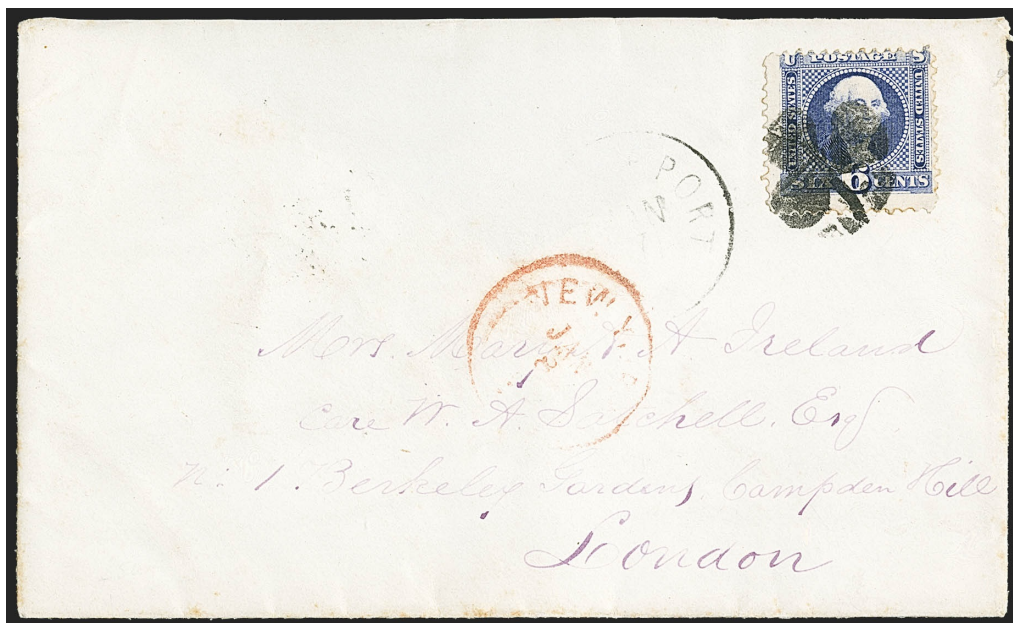 U POSTAGE S
UNITED STATES
UNITED STATES
SIX 6 CENTS
PORT
NEW Y
Mrs. A Ireland
Care W. A. Satchell. Esq
No. 1. Berkeley Gardens, Campden Hill
London